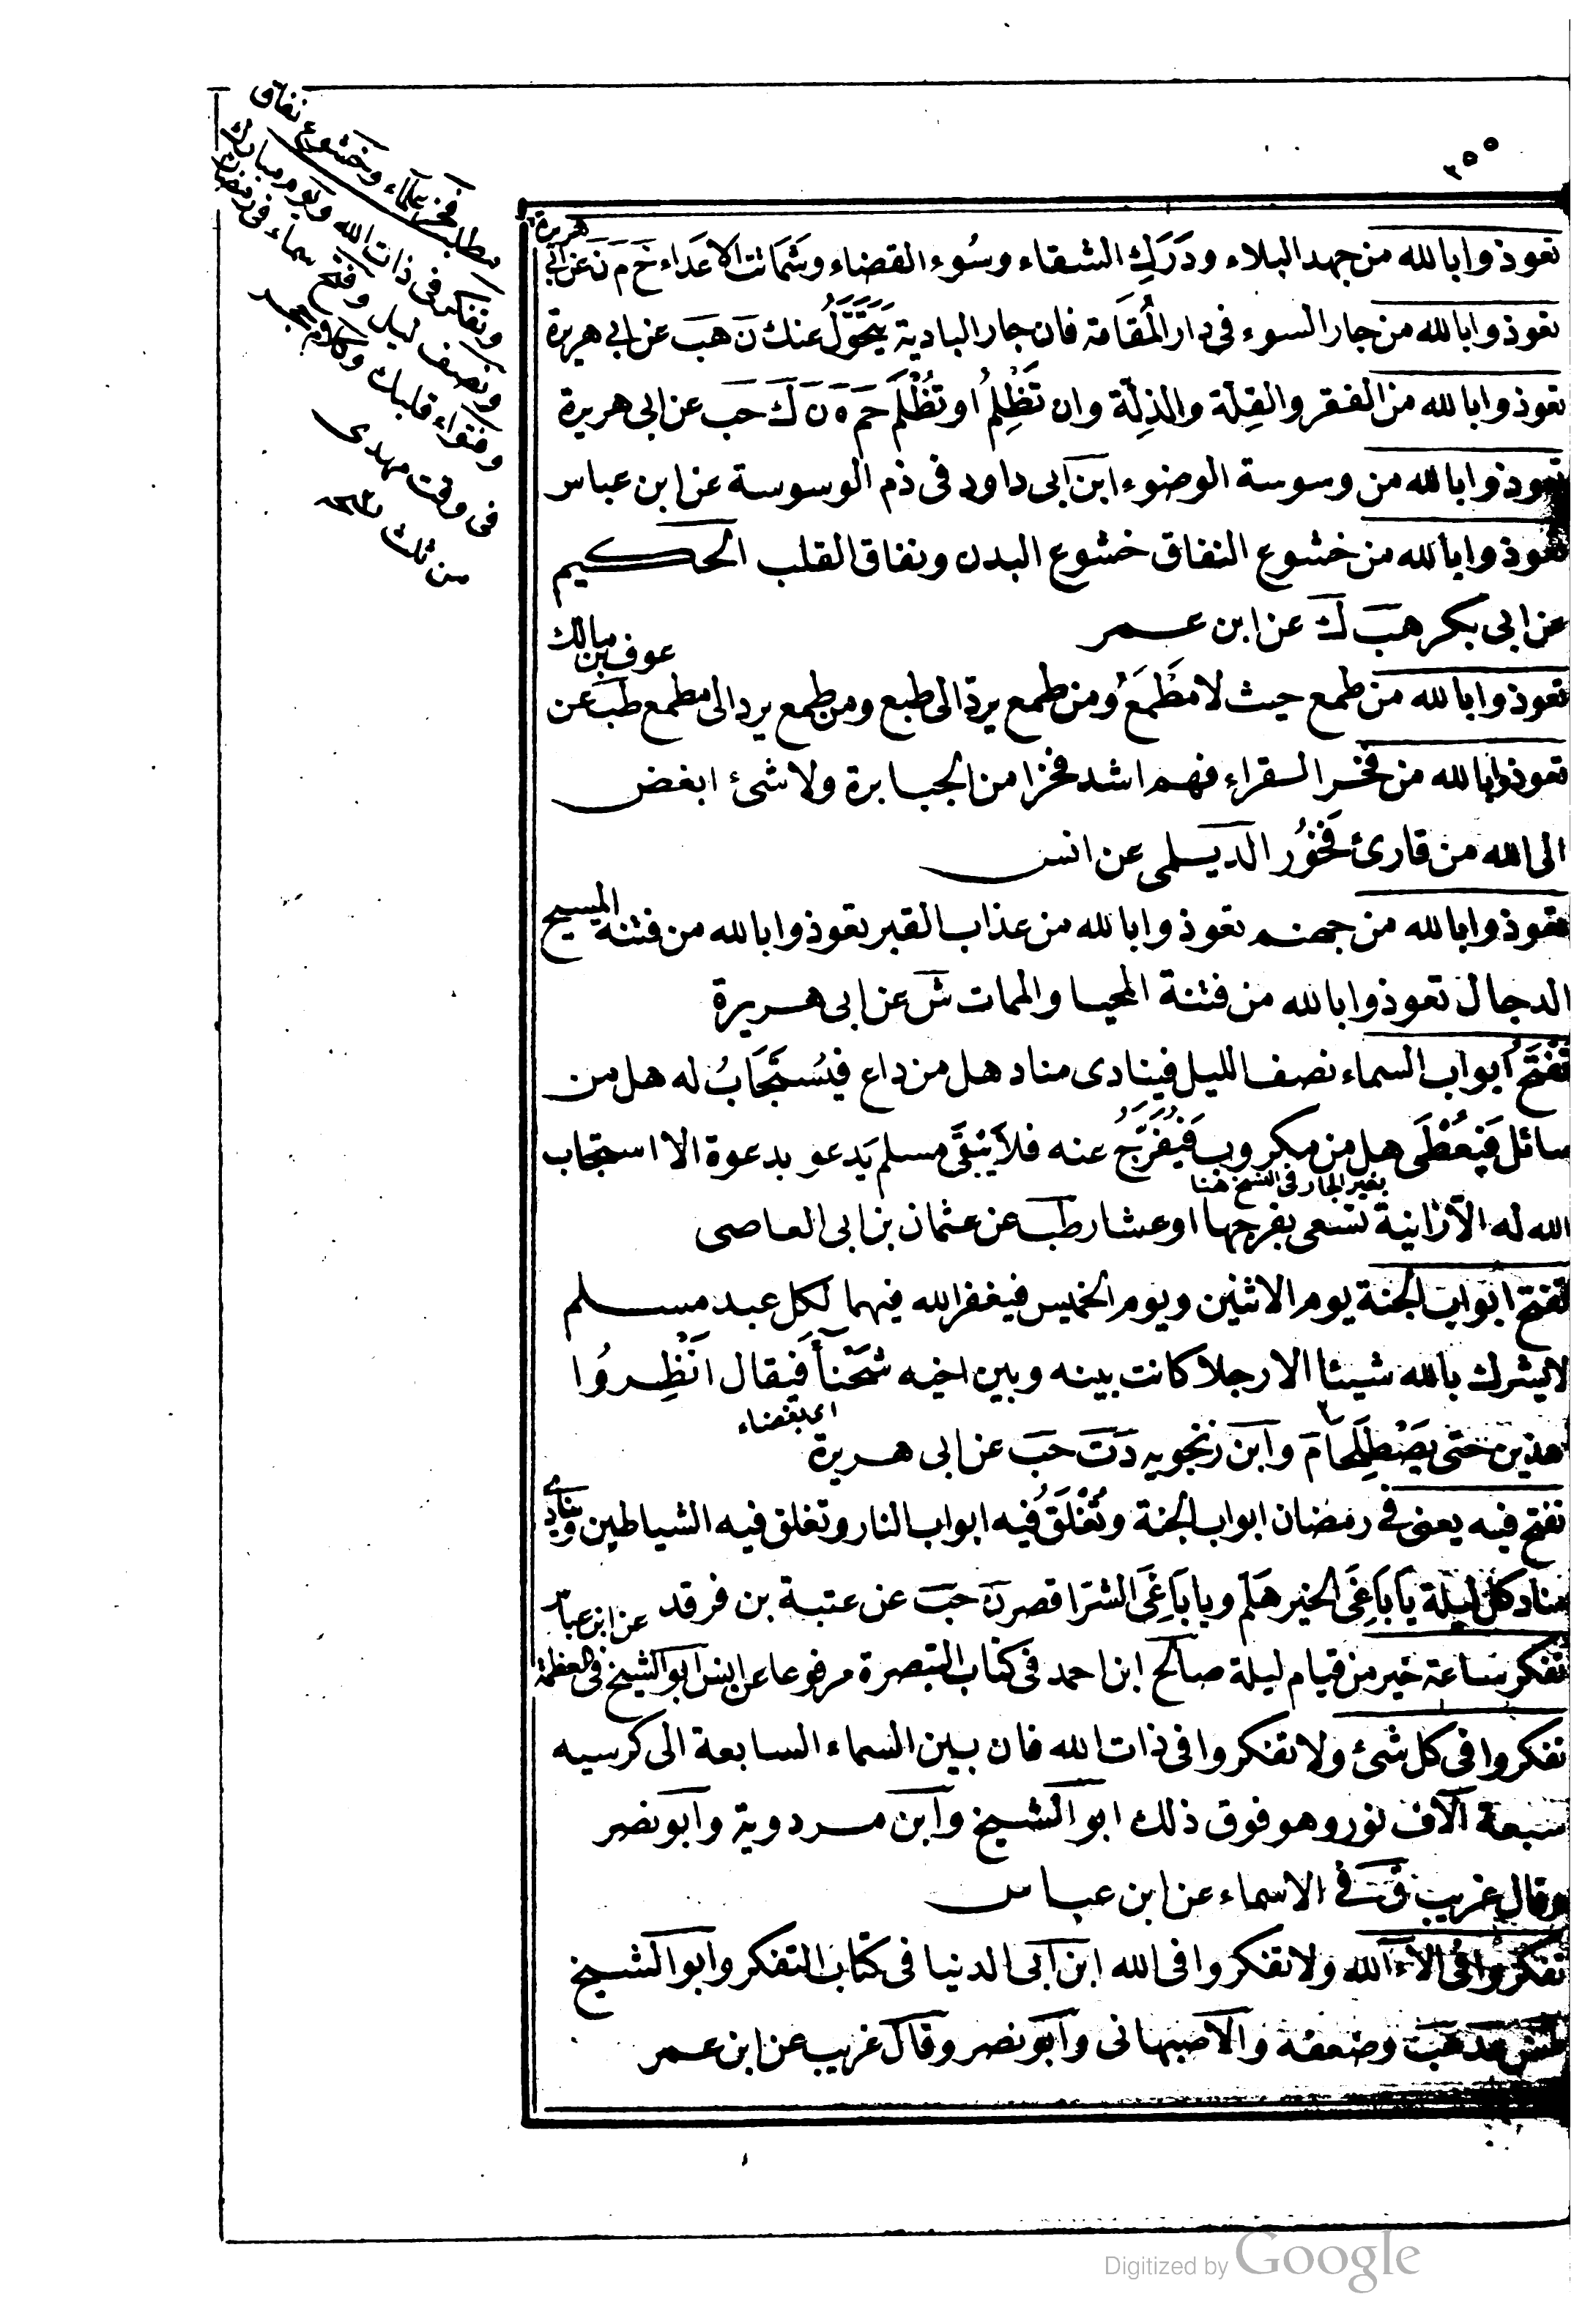 ٢٥٥
تعوذوا بالله من جهد البلاء ودَرَكِ الشقاء وسُوء القضاء وشماتت الاعداء خ م ن عن ابى هريرة
تعوذوا بالله من جار السوء فى دار المُقَامَة فان جار البادية يَتَحَوَّلُ عنك ن هب عن ابى هريرة
تعوذوا بالله من الفقر والقِلّة والذِلّة وان تَظْلِمُ اوتُظْلَمَ حم ه ن ك حب عن ابى هريرة
تعوذوا بالله من وسوسة الوضوء ابن ابى داود فى ذم الوسوسة عن ابن عباس
تعوذوا بالله من خشوع النفاق خشوع البدن ونفاق القلب الحكيم
عن ابى بكر هب ك عن ابن عمر
تعوذوا بالله من طمع حيث لا مَطْمَعَ ومن طمع يردّ الى طبع ومن طمع يرد الى مطمع طب عن عوف بن مالك
تعوذوا بالله من فخر القراء فهم اشد فخرا من الجبابرة ولا شئ ابغض
الى الله من قارئ فَخُورٍ الديلمى عن انس
تعوذوا بالله من جهنم تعوذوا بالله من عذاب القبر تعوذوا بالله من فتنة المسيح
الدجال تعوذوا بالله من فتنة المحيا والممات ش عن ابى هريرة
تُفْتَحُ ابواب السماء نصف الليل فينادى مناد هل من داع فيُسْتَجَابُ له هل من
سائل فَيُعْطَى هل من مكروب فَيُفَرَّجُ عنه فلا يَبْقَى مسلم يَدعو بدعوة الا استجاب
بغير الجار فى النسخ هنا
الله له الّا زانية تسعى بفرجها او عشار طب عن عثمان بن ابى العاصى
تفتح ابواب الجنة يوم الاثنين ويوم الخميس فيغفر الله فيهما لكل عبد مسلم
لا يشرك بالله شيئا الا رجلا كانت بينه وبين اخيه شَحْنَاءُ فَيقال انْظِرُوا
اى بغضاء
هذين حتى يَصْطَلِحَا م وابن زنجويه د ت حب عن ابى هريرة
تفتح فيه يعنى فى رمضان ابواب الجنة وتُغْلَقُ فيه ابواب النار وتغلق فيه الشياطين وينادى
مناد كل ليلة يَا بَاغِىَ الخير هَلُمّ ويا بَاغِىَ الشرّ اقصر ن حب عن عتبة بن فرقد
تفكر ساعة خير من قيام ليلة صالح ابن احمد فى كتاب التبصرة مرفوعا عن انس ابو الشيخ فى العظمة عن ابن عباس
تفكروا فى كل شئ ولا تفكروا فى ذات الله فان بين السماء السابعة الى كرسيه
سبعة آلاف نور وهو فوق ذلك ابو الشيخ وابن مردوية وابو نصر
وقال غريب ق فى الاسماء عن ابن عباس
تفكروا فى آلاء الله ولا تفكروا فى الله ابن ابى الدنيا فى كتاب التفكر وابو الشيخ
طس عد هب وضعفه والاصبهانى وابو نصر وقال غريب عن ابن عمر
مطلب فخر علماء وخشوع نفاق
وتفكر فى ذات الله ويوم مبارك
ونصف ليل وفتح سماء فى رمضان
فى وقت مهدى
Digitized by Google